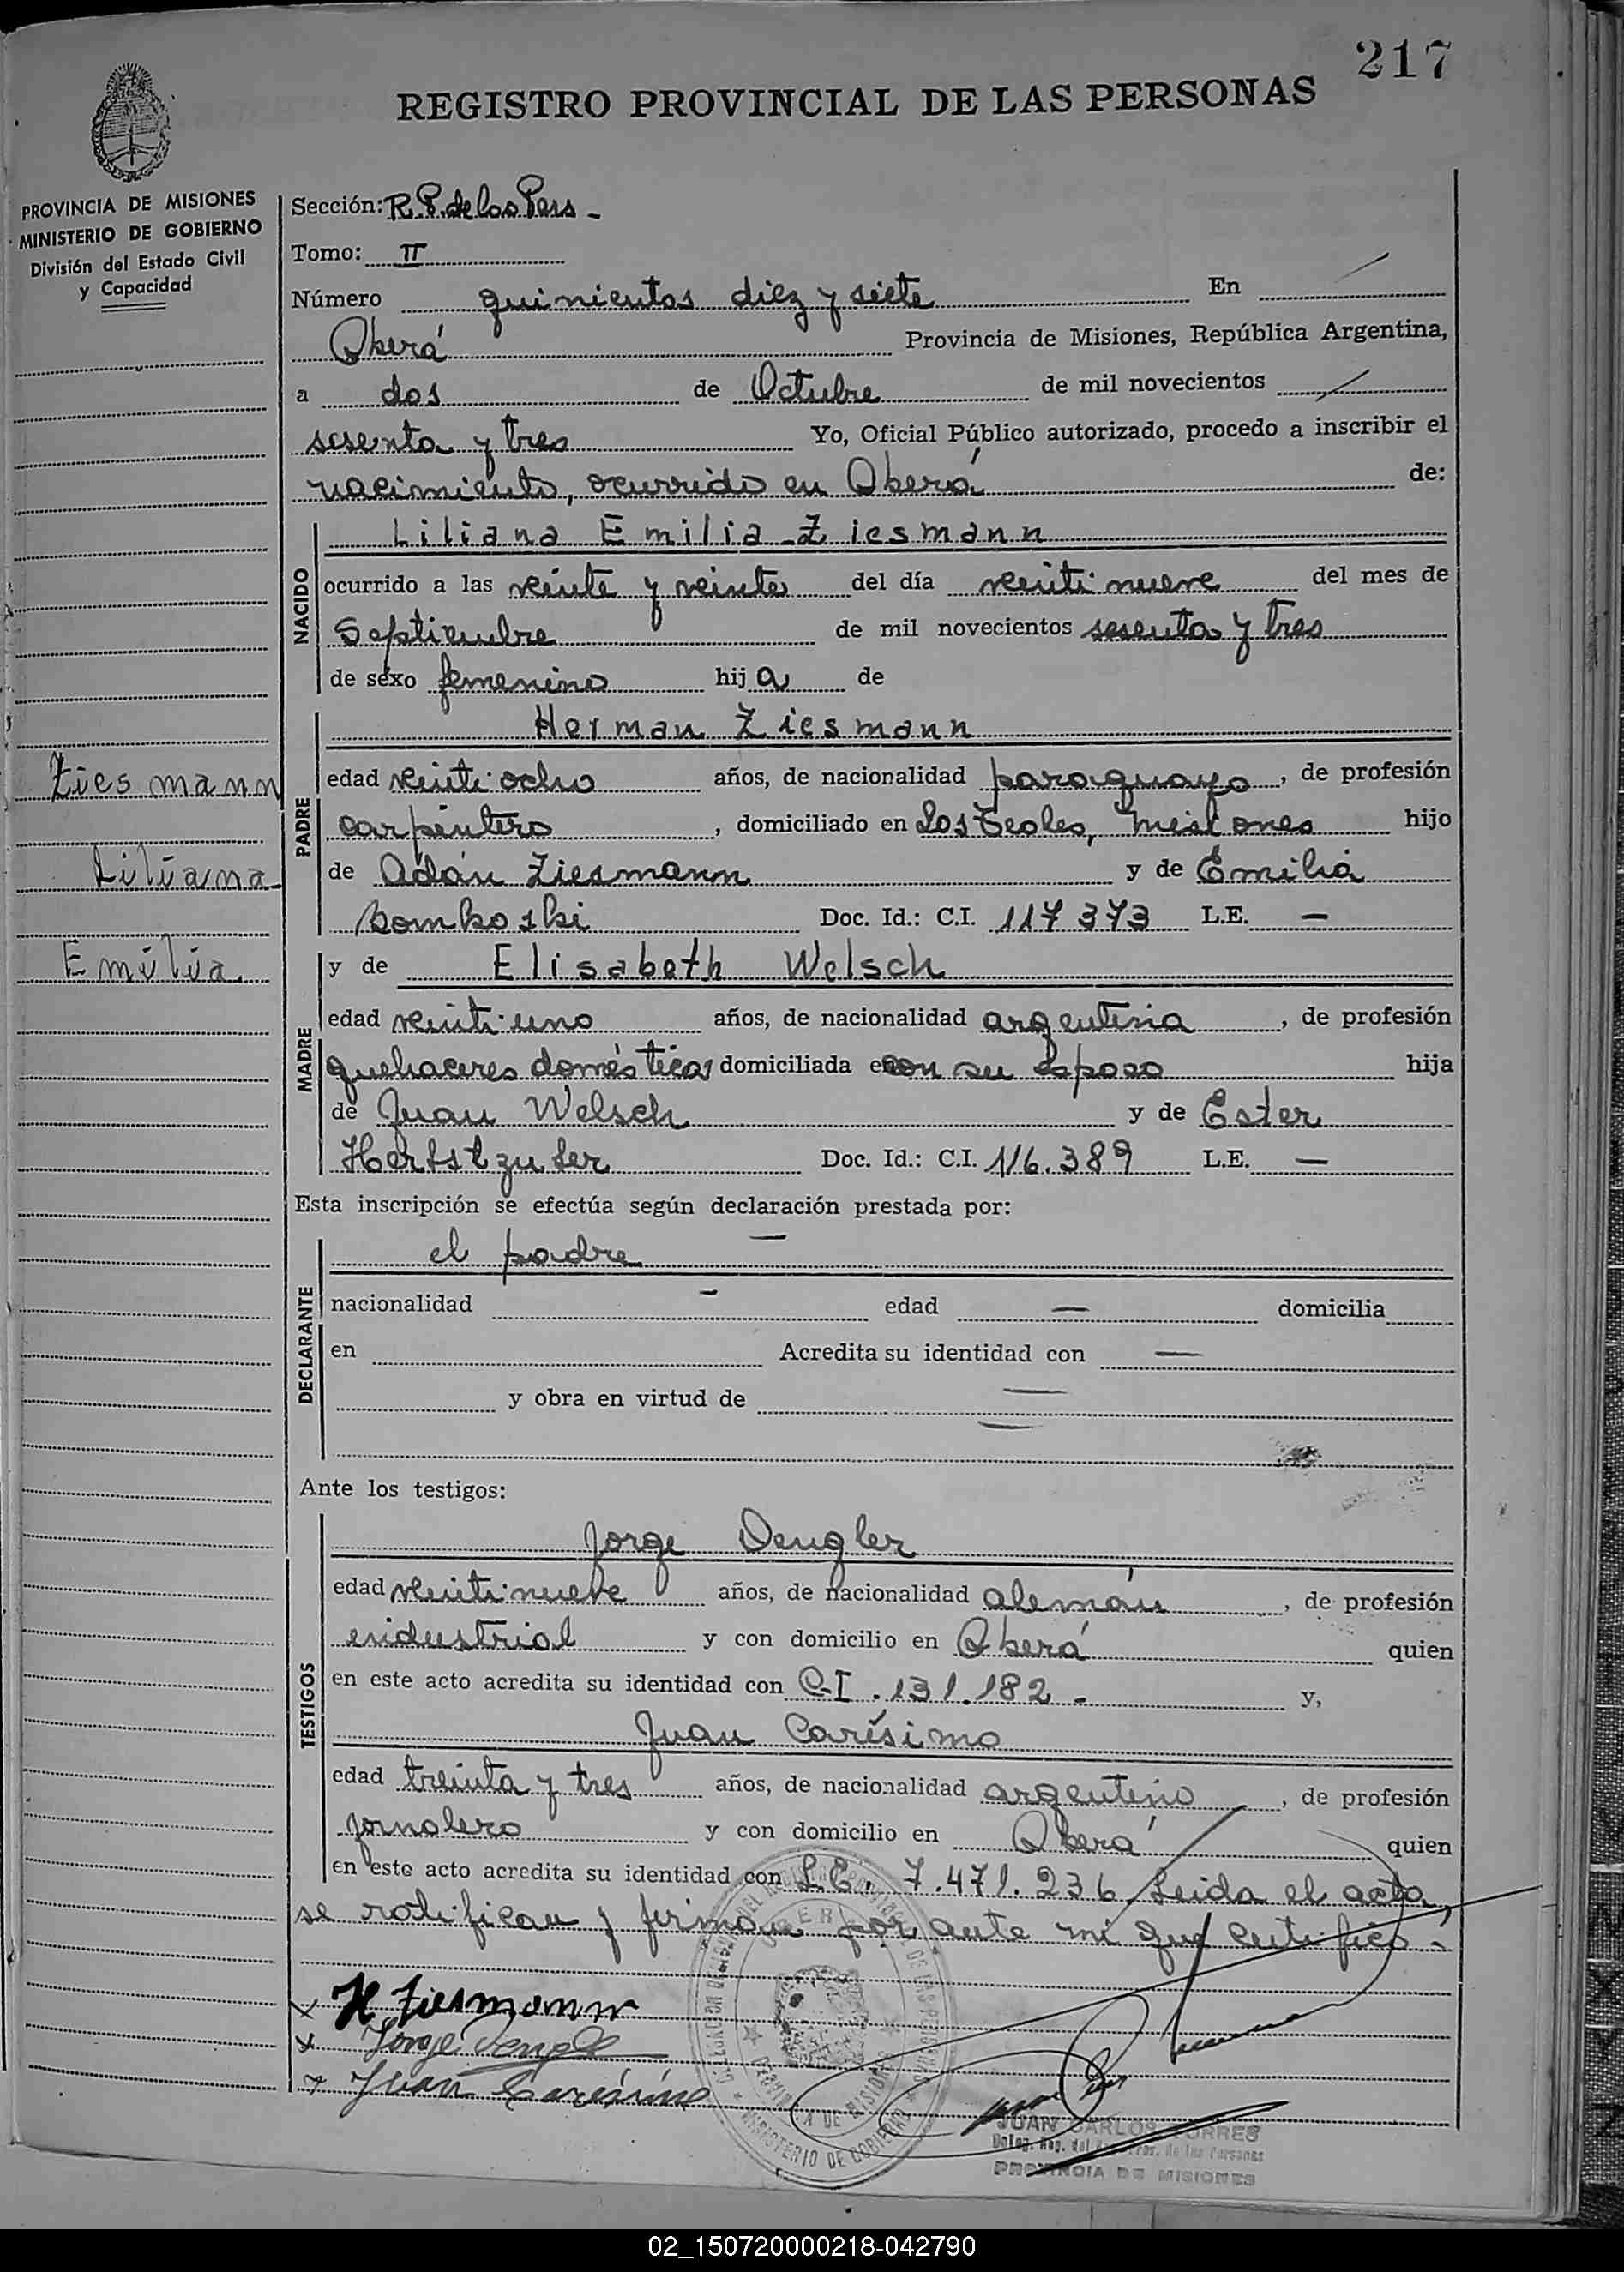 217
REGISTRO PROVINCIAL DE LAS PERSONAS
PROVINCIA DE MISIONES
MINISTERIO DE GOBIERNO
División del Estado Civil
y Capacidad
Sección: R. P. de las Pers -
Tomo: II
Número quinientos diez y siete En
Oberá Provincia de Misiones, República Argentina,
a dos de Octubre de mil novecientos
sesenta y tres Yo, Oficial Público autorizado, procedo a inscribir el
nacimiento, ocurrido en Oberá de:
NACIDO
Liliana Emilia Ziesmann
ocurrido a las veinte y veinte del día veintinueve del mes de
Septiembre de mil novecientos sesenta y tres
de sexo femenino hija de
PADRE
Herman Ziesmann
Ziesmann
Liliana
Emilia
edad veintiocho años, de nacionalidad paraguayo, de profesión
carpintero, domiciliado en Los Teales, Misiones hijo
de Adán Ziesmann y de Emilia
Domkoski Doc. Id.: C.I. 117373 L.E. —
MADRE
y de Elisabeth Welsch
edad veintiuno años, de nacionalidad argentina, de profesión
quehaceres domésticos domiciliada en con su esposo hija
de Juan Welsch y de Ester
Doc. Id.: C.I. 116.389 L.E. —
Esta inscripción se efectúa según declaración prestada por:
DECLARANTE
el padre —
nacionalidad — edad — domicilia
en Acredita su identidad con —
y obra en virtud de —
—
Ante los testigos:
TESTIGOS
Jorge Dengler
edad veintinueve años, de nacionalidad alemán, de profesión
industrial y con domicilio en Oberá quien
en este acto acredita su identidad con C.I. 131.182 - y,
Juan Carísimo
edad treinta y tres años, de nacionalidad argentino, de profesión
jornalero y con domicilio en Oberá quien
en este acto acredita su identidad con L.E. 7.471.236 Leida el acta,
se ratifican y firman por ante mi que certifico -
x H Ziesmann
x Jorge Dengler
x Juan Carísimo
JUAN CARLOS TORRES
Deleg. Reg. del Reg. Pros. de las Personas
PROVINCIA DE MISIONES
02_150720000218-042790